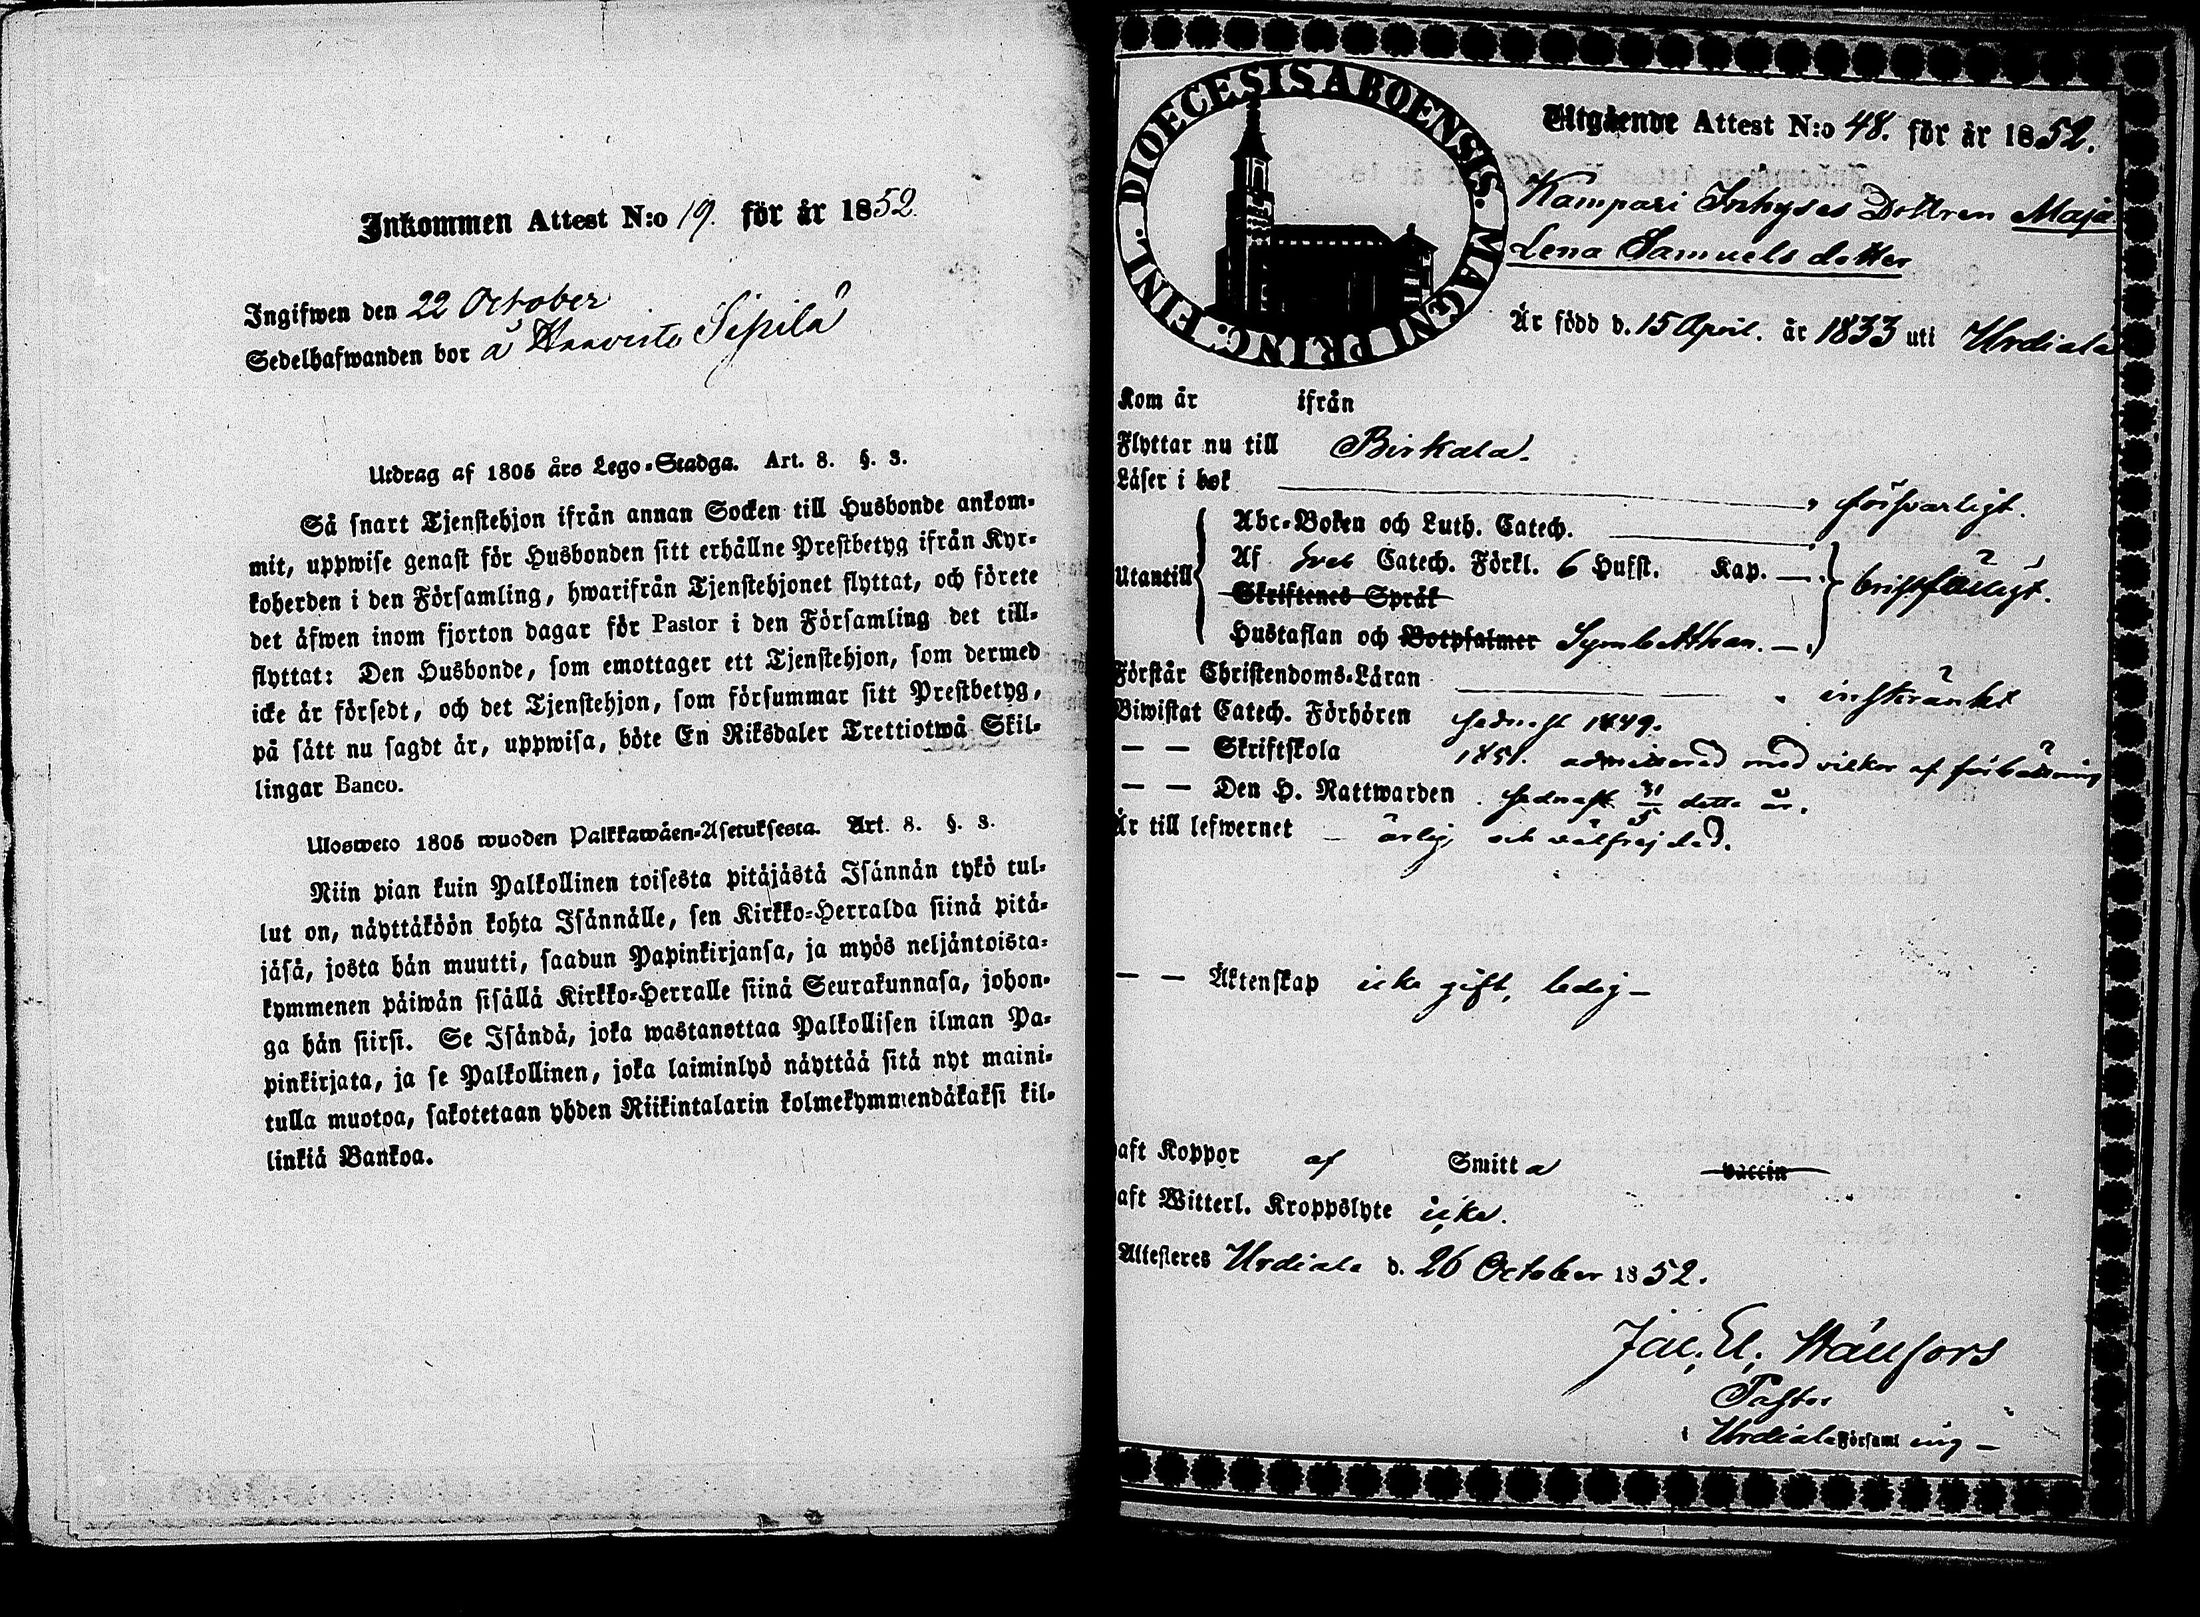 Inkommen Attest N:o 19. för år 1852.
Ingifwen den 22 October
Sedelhafwanden bor å Haavisto Sipilä
Utdrag af 1805 års Lego-Stadga. Art. 8. §. 3.
Så snart Tjenstehjon ifrån annan Socken till Husbonde ankom-
mit, uppwise genast för Husbonden sitt erhållne Prestbetyg ifrån Kyr-
koherden i den Församling, hwarifrån Tjenstehjonet flyttat, och förete
det äfwen inom fjorton dagar för Pastor i den Församling det till-
flyttat: Den Husbonde, som emottager ett Tjenstehjon, som dermed
icke är försedt, och det Tjenstehjon, som försummar sitt Prestbetyg,
på sätt nu sagdt är, uppwisa, böte En Riksdaler Trettiotwå Skil-
lingar Banco.
Ulosweto 1805 wuoden Palkkawäen-Asetuksesta. Art. 8. §. 3.
Niin pian kuin Palkollinen toisesta pitäjästä Isännän tykö tul-
lut on, näyttäköön kohta Isännälle, sen Kirkko-Herralda siinä pitä-
jäsä, josta hän muutti, saadun Papinkirjansa, ja myös neljäntoista-
kymmenen päiwän sisällä Kirkko-Herralle siinä Seurakunnasa, johon-
ga hän siirsi. Se Isändä, joka wastanottaa Palkollisen ilman Pa-
pinkirjata, ja se Palkollinen, joka laiminlyö näyttää sitä nyt maini-
tulla muotoa, sakotetaan yhden Riikintalarin kolmekymmendäkaksi kil-
linkiä Bankoa.
DIOECESIS ABOENSIS. MAGNI PRINC. FINL.
Utgående Attest N:o 48. för år 1852.
Kampari Inhyses Dottren Maja
Lena Samuels dotter
Är född d. 15 April. år 1833 uti Urdiala
Kom år ifrån
Flyttar nu till Birkala.
Läser i bok försvarligt.
Utantill Abc-Boken och Luth. Catech.
Af Catech. Förkl. 6 Hufst. Kap. — bristfälligt.
Skriftenes Språk
Hustaflan och Botpsalmer Symb. Athan. —
Förstår Christendoms-Läran inskränkt
Biwistat Catech. Förhören sednast 1849.
— — Skriftskola 1851. admitterad med vilkor af förbättring
— — Den H. Nattwarden sednast 31/5 detta år.
Är till lefwernet ärlig och välfrejdad.
— — Äktenskap icke gift, ledig —
haft Koppor af Smitta vaccin
haft Witterl. Kroppslyte icke.
Attesteres Urdiala d. 26 October 1852.
Jac. El.
Pastor
i Urdiala Församling —